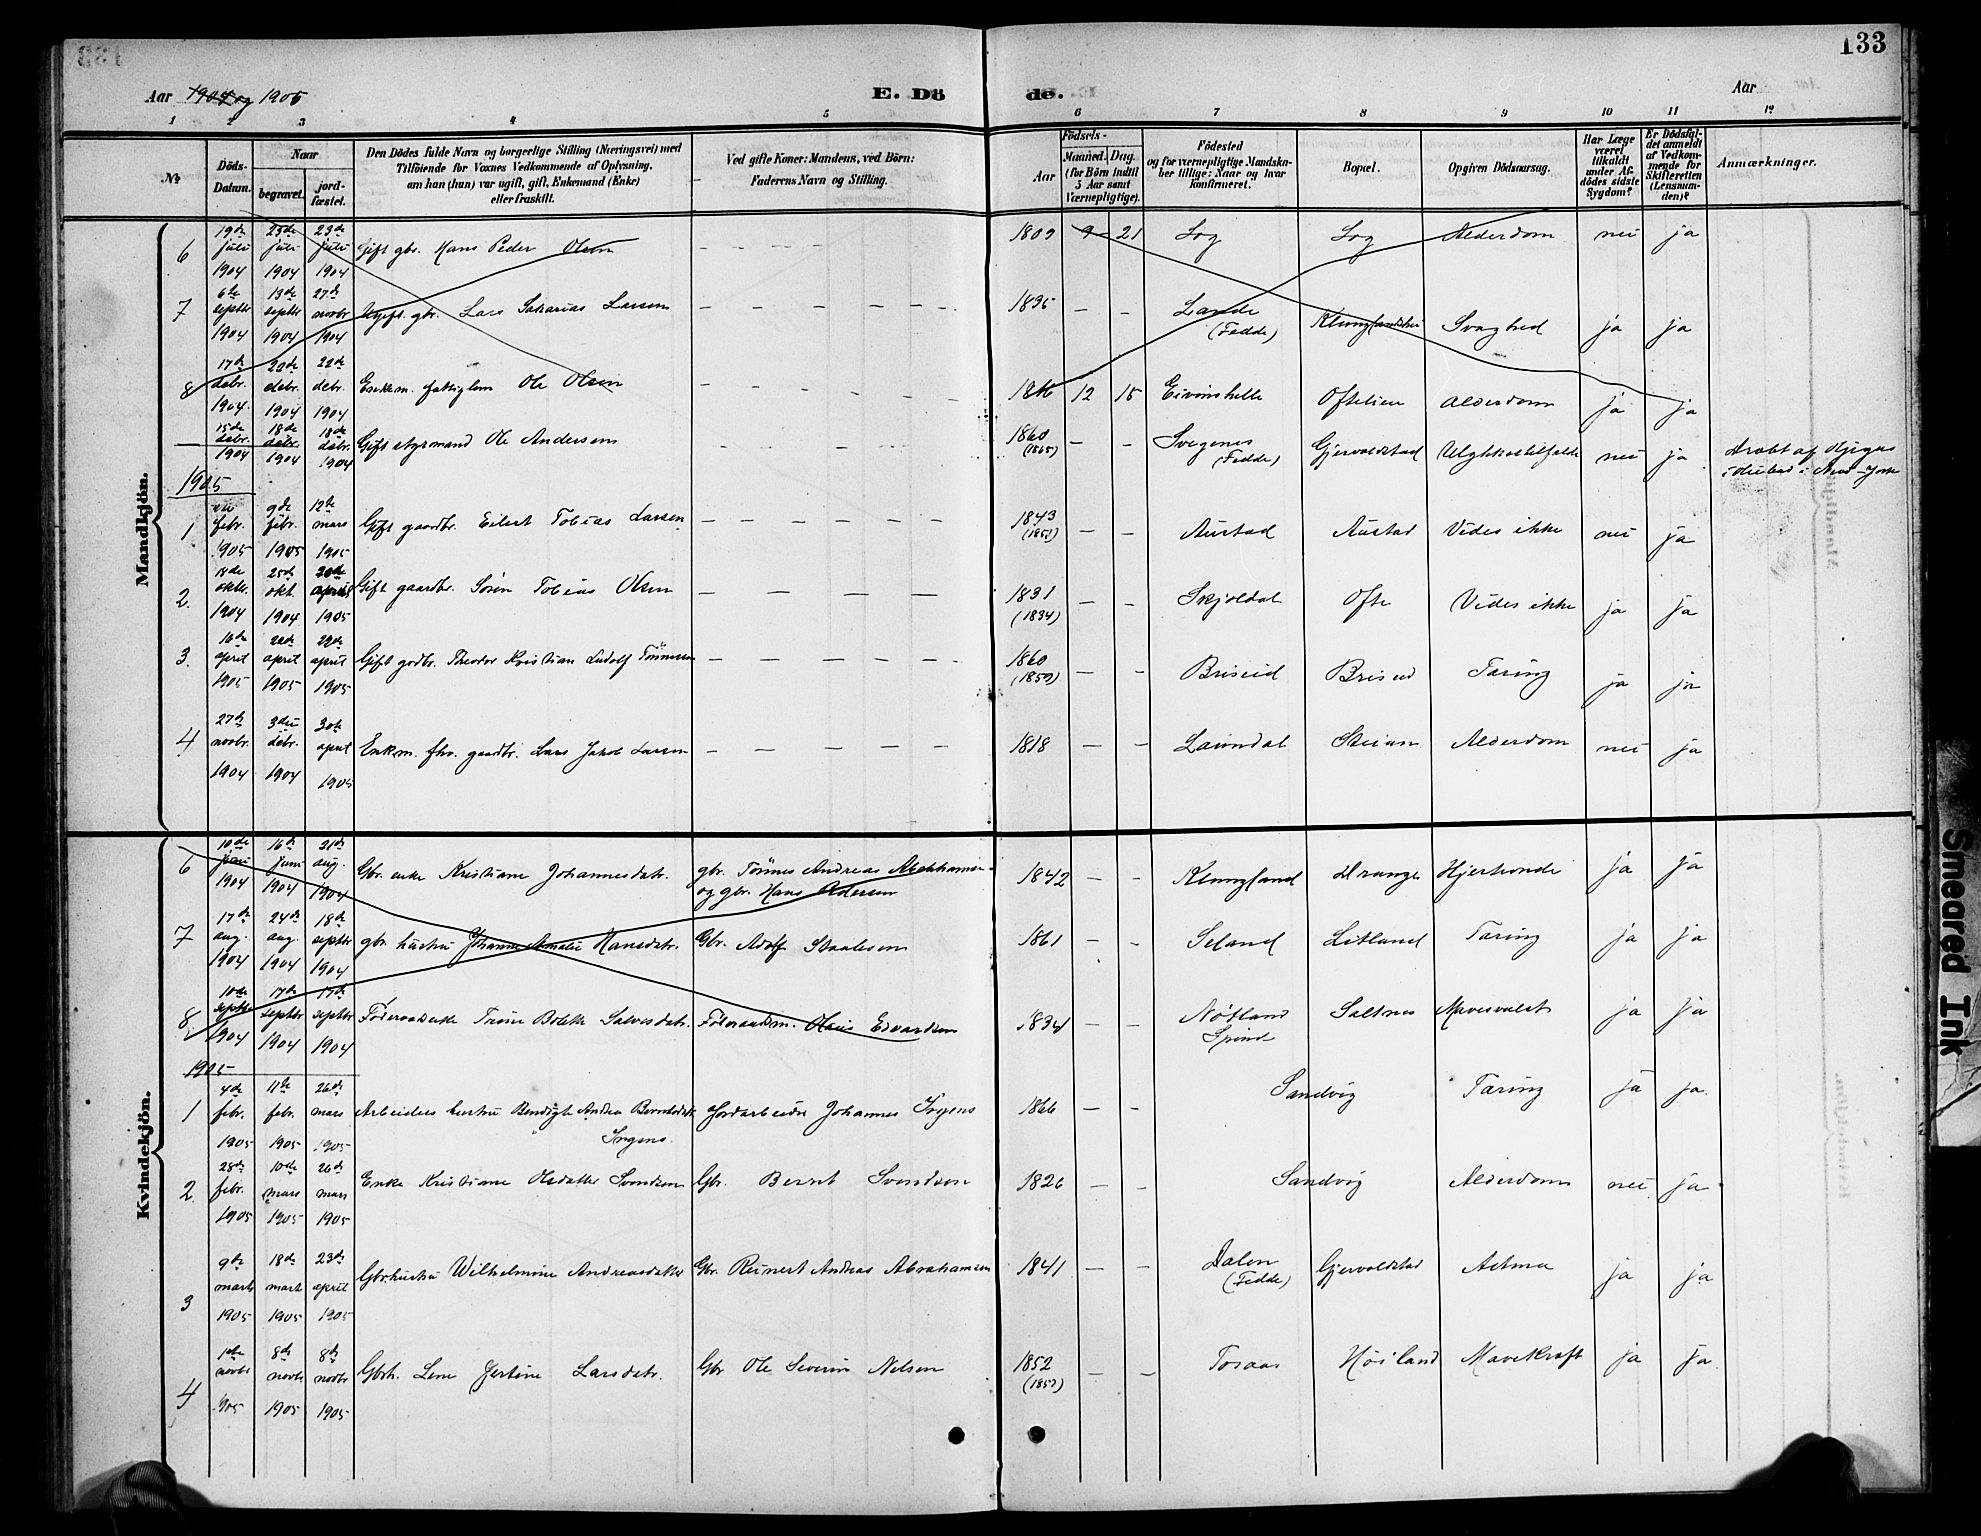 133
Aar 1904 og 1905
E. Dö de.
Aar
1 2 3 4 5 6 7 8 9 10 11 12
№
Döds-Datum.
Naar
begravet.
jord-fæstet.
Den Dödes fulde Navn og borgerlige Stilling (Næringsvei) med
Tilföiende for Voxnes Vedkommende af Oplysning,
om han (hun) var ugift, gift, Enkemand (Enke)
eller fraskilt.
Ved gifte Koner: Mandens, ved Börn:
Faderens Navn og Stilling.
Födsels-
Aar
Maaned. Dag.
(for Börn indtil
5 Aar samt
Værnepligtige).
Födested
og for værnepligtige Mandska-
ber tillige: Naar og hvor
konfirmeret.
Bopæl.
Opgiven Dödsaarsag.
Har Læge
været
tilkaldt
under Af-
dödes sidste
Sygdom?
Er Dödsfal-
det anmeldt
af Vedkom-
mende for
Skifteretten
(Lensman-
den)?
Anmærkninger.
Mandkjön.
6 19de juli 1904 23de juli 1904 23de juli 1904 Gift gbr. Hans Peder Olsen 1809 9 21 Log Log Alderdom nei ja
7 6te septbr 1904 13de septbr 1904 27de novbr 1904 Ugift gbr. Lars Sakarias Larsen 1835 Lande (Fedde) Svaghed ja ja
8 17de debr. 1904 22de debr. 1904 22de debr. 1904 Enkem. fattiglem Ole Olsen 12 15 Eivindshelle Oftelien Alderdom ja ja
15de debr. 1904 18de debr. 1904 18de debr. 1904 Gift styrmand Ole Andersen 1860 (1865) Svegenes (Fedde) Gjervoldstad Ulykkestilfelde nei ja
1905
1 febr. 1905 9de febr. 1905 12te mars 1905 Gift gaardbr. Eilert Tobias Larsen 1843 (1851) Austad Austad Vides ikke nei ja
2. 18de oktbr. 1904 25de okt. 1904 april 1905 Gift gaardbr. Sören Tobias Olsen 1831 (1834) Skjoldal Ofte Vides ikke ja ja
3. 16de april 1905 22de april 1905 22de april 1905 Gift gdbr. Theodor Kristian Ludolf Tönnessen 1860 (1859) Briseid Briseid Tæring ja ja
4 27de novbr. 1904 3die debr. 1904 30te april 1905 Enkem. fhv. gaardbr. Lars Jakob Larsen 1818 Laundal Steien Alderdom nei ja
Kvindekjön.
6 10de juni 1904 16de juni 1904 21de aug. 1904 Gbr. enke Kristiane Johannesdatr. gbr. Tönnes Andreas
og gbr. Hans Pedersen 1842 Klungland Drange Hjertconde ja ja
7 17de aug. 1904 24de aug. 1904 18de septbr 1904 gbr. hustru Johanne Amalie Hansdatr. Gbr. Adolf Staalesen 1861 Seland Litland Tæring ja ja
8 10de septbr 1904 17de septbr 1904 17de septbr 1904 Föderaadsenke Trine Bolette Salvesdatr. Föderaadsm. Hans Edvardsen 1834 Nötland Spind Saltnes Mavesvulst ja ja
1905
1 4de febr. 1905 11te febr. 1905 26de mars 1905 Arbeiders hustru Bendigte Andrea Berntsdatr. Ingens. Jordarbeider Johannes Ingens 1866 Sandvig Tæring ja ja.
2. 28de febr. 1905 10de mars 1905 26de mars 1905 Enke Kristiane Olsdatter Svendsen Gbr. Bernt Svendsen 1826 Sandvig Alderdom nei ja
3 9de marts 1905 18de mart 1905 23de april 1905 Gbr.hustru Wilhelmine Andreasdatter Gbr. Reinert Andreas Abrahamsen 1841 Dalen (Fedde) Gjervoldstad Astma ja ja
4 1ste novbr 1905 8de novbr 1905 8de novbr 1905 Gbrh. Lene Jertine Larsdatr. Gbr Ole Severin Nelson 1852 Tosaas Höiland Mavekræft ja ja.
Smeared Ink